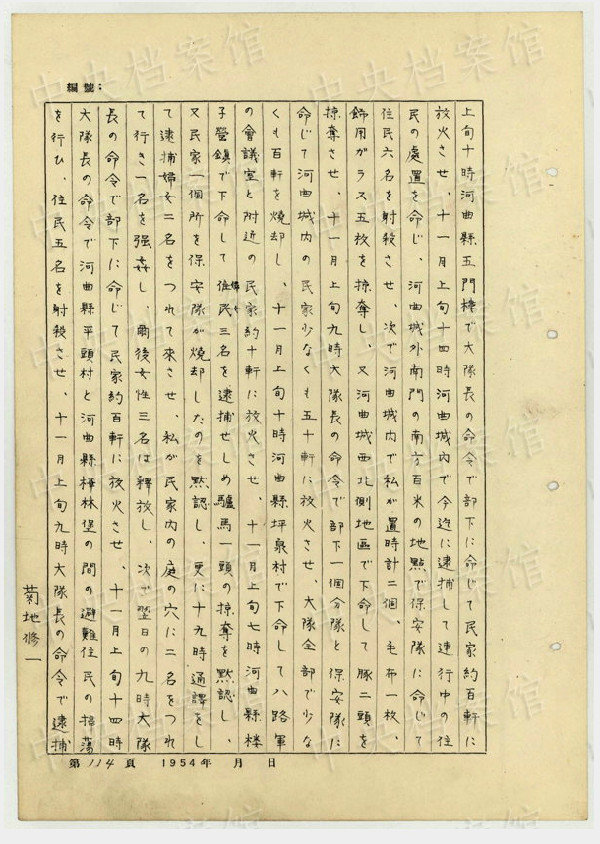 編號：
上旬十時河曲縣五門楼で大隊長の命令で部下に命じて民家約百軒に
放火させ、十一月上旬十四時河曲城内で今迄に逮捕して連行中の住
民の處置を命じ、河曲城外南門の南方百米の地點で保安隊に命じて
住民六名を射殺させ、次で河曲城内で私が置時計二個、毛布一枚、
飾用ガラス五枚を掠奪し、又河曲城西北側地區で下命して豚二頭を
掠奪させ、十一月上旬九時大隊長の命令で部下一個分隊と保安隊に
命じて河曲城内の民家少なくも五十軒に放火させ、大隊全部で少な
くも百軒を焼却し、十一月上旬十時河曲縣坪泉村で下命して八路軍
の會議室と附近の民家約十軒に放火させ、十一月上旬七時河曲縣楼
子營鎮で下命して住民三名を逮捕せしめ驢馬一頭の掠奪を黙認し、
又民家一個所を保安隊が焼却したのを黙認し、更に十九時通譯をし
て逮捕婦女二名をつれて來させ、私が民家内の庭の穴に二名をつれ
て行き一名を强姦し、爾後女性三名は釋放し、次で翌日の九時大隊
長の命令で部下に命じて民家約百軒に放火させ、十一月上旬十四時
大隊長の命令で河曲縣平頭村と河曲縣樺林堡の間の避難住民の掃蕩
を行ひ、住民五名を射殺させ、十一月上旬九時大隊長の命令で逮捕
菊地修一
第114頁 1954年 月 日
中央档案馆